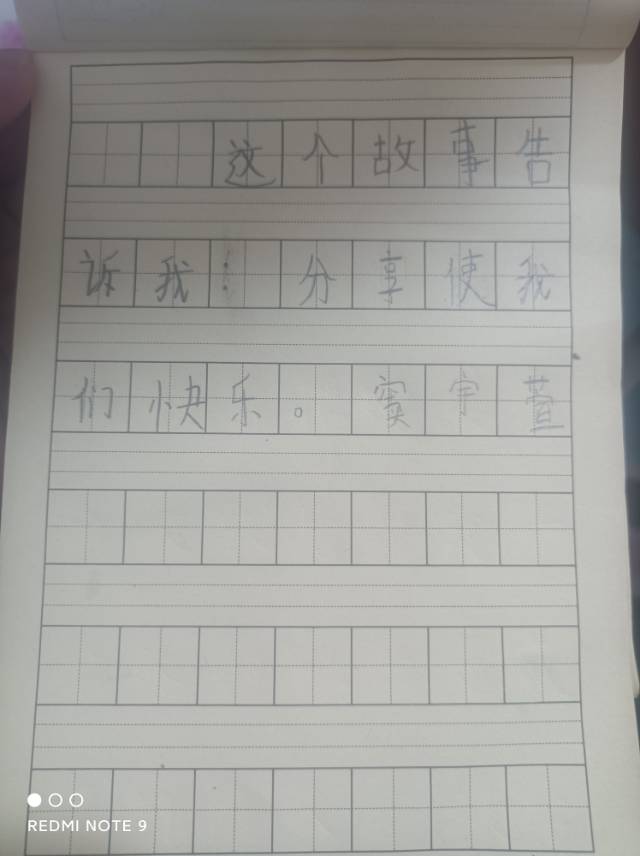 这个故事告
诉我：分享使我
们快乐。窦宇萱
REDMI NOTE 9